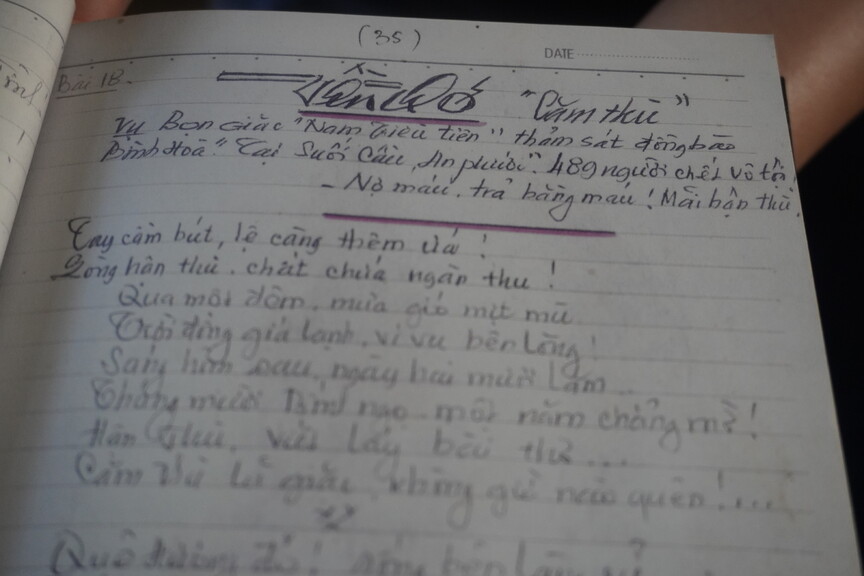 (35)
DATE
Bài 18.
"Căm thù"
Vụ Bọn Giặc "Nam Triều tiên" thảm sát đồng bào
Bình Hoà". Tại Suối Câu, An phước". 489 người chết vô tội
- Nợ máu, trả bằng máu! Mãi hận thù.
Tay cầm bút, lệ càng thêm ứa!
Lòng hân thù. chất chứa ngàn thu!
Qua một đêm, mưa gió mịt mù
Trời đông giá lạnh, vi vu bên lòng!
Sáng hôm sau, ngày hai mươi lăm
Tháng mười năm chẳng mờ!
Hân thù, viết lấy bài thơ...
Căm thù lũ giặc, không giờ nào quên!...
Quê hương